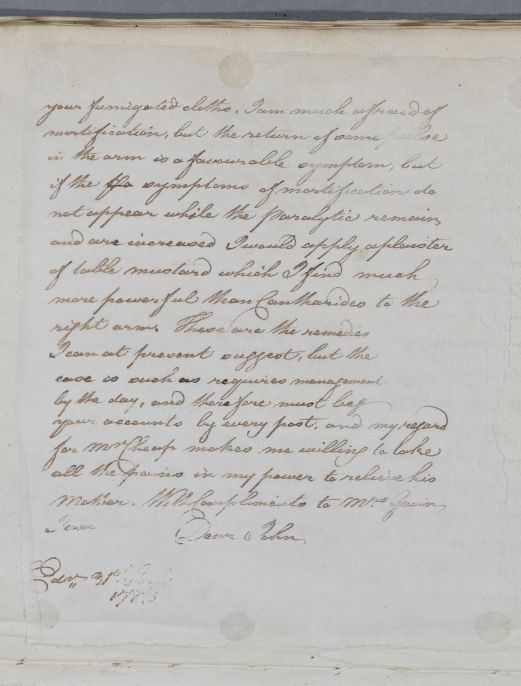 your fumigated cloths. I am much afraid of
mortification, but the return of some pulse
in the arm is a favourable symptom, but
if the symptoms of mortification do
not appear while the Paralytic remain,
and are increased I would apply a plaister
of table mustard which I find much
more powerful than Cantharides to the
right arm. These are the remedies
I can at present suggest, but the
case is such as requires management
by the day, and therefore must beg
your accounts by every post, and my regard
for Mr Cheap makes me willing to take
all the pains in my power to relieve his
Mother. With Compliments to Mrs Gavin
I am
Dear John
Edinr 31st